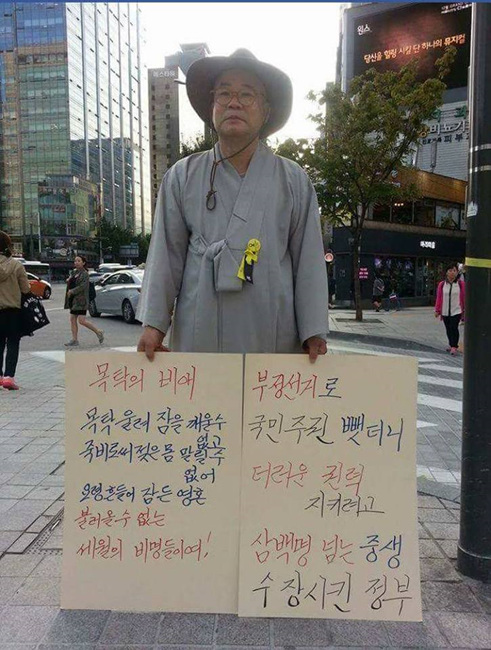 목탁의 비애
목탁 울려 잠을 깨울수
없고
죽비로써 젖은 몸 말릴 수
없어
요령 흔들어 잠든 영혼
불러올 수 없는
세월의 비명들이여!
부정선거로
국민주권 뺏더니
더러운 권력
지키려고
삼백명 넘는 중생
수장시킨 정부
윈스
당신을 힐링 시킬 단 하나의 뮤지컬